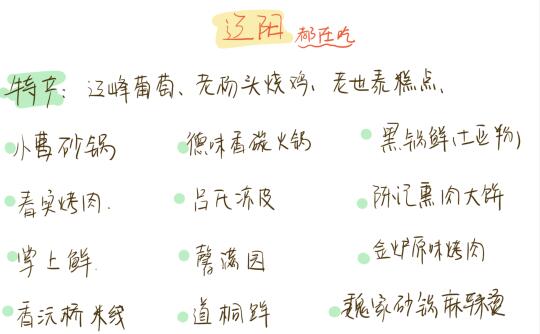 辽阳 都在吃
特产：辽峰葡萄、老杨头烧鸡、老世泰糕点、
小曹砂锅 德味香碳火锅 黑锅鲜(土豆粉)
春实烤肉. 吕氏冻皮 陈记熏肉大饼
掌上鲜. 馨满园 金炉原味烤肉
香沅桥米线 道桐鲜 魏家砂锅麻辣烫